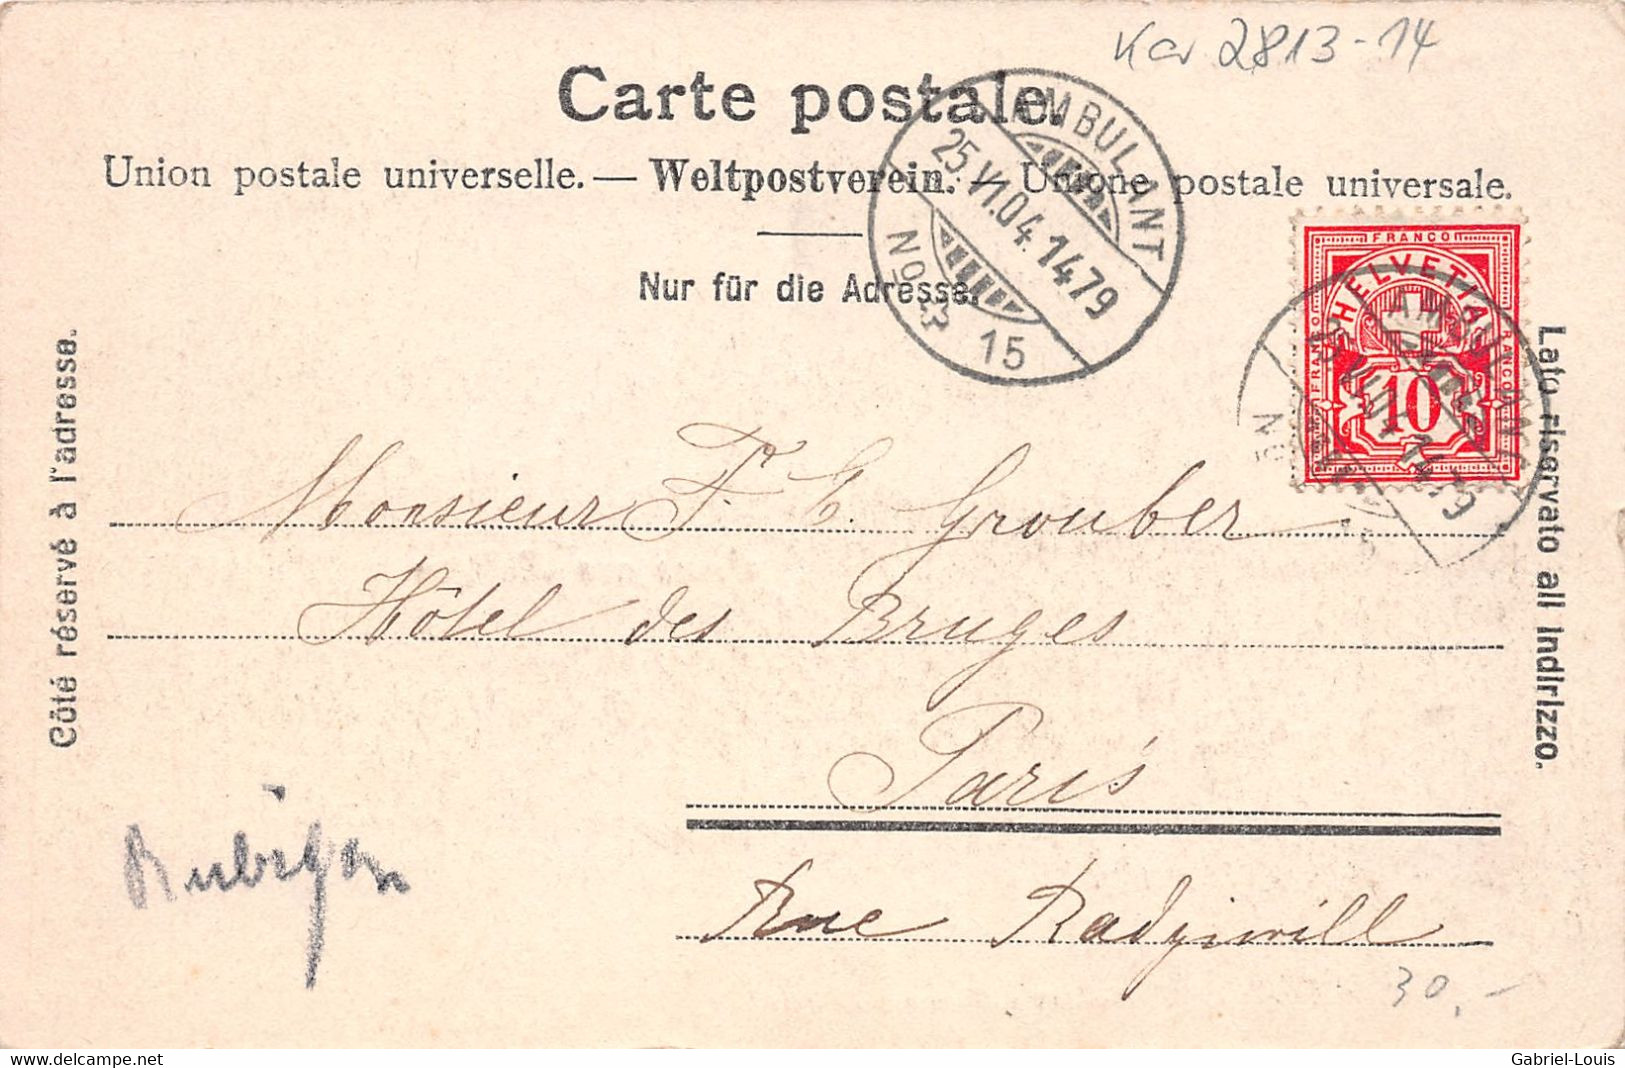 Kar 2813-14
Carte postale.
Union postale universelle. — Weltpostverein. — Unione postale universale.
Nur für die Adresse.
AMBULANT
25.VI.04.1479
No 15
FRANCO
FRANCO
FRANCO
HELVETIA
10
AMBULANT
VI.04.1479
No
Côté réservé à l'adresse.
Lato riservato all indirizzo.
Monsieur F. E. Grouber
Hôtel des Bruges
Paris
Rubigen
Rue Radziwill
30,-
www.delcampe.net
Gabriel-Louis